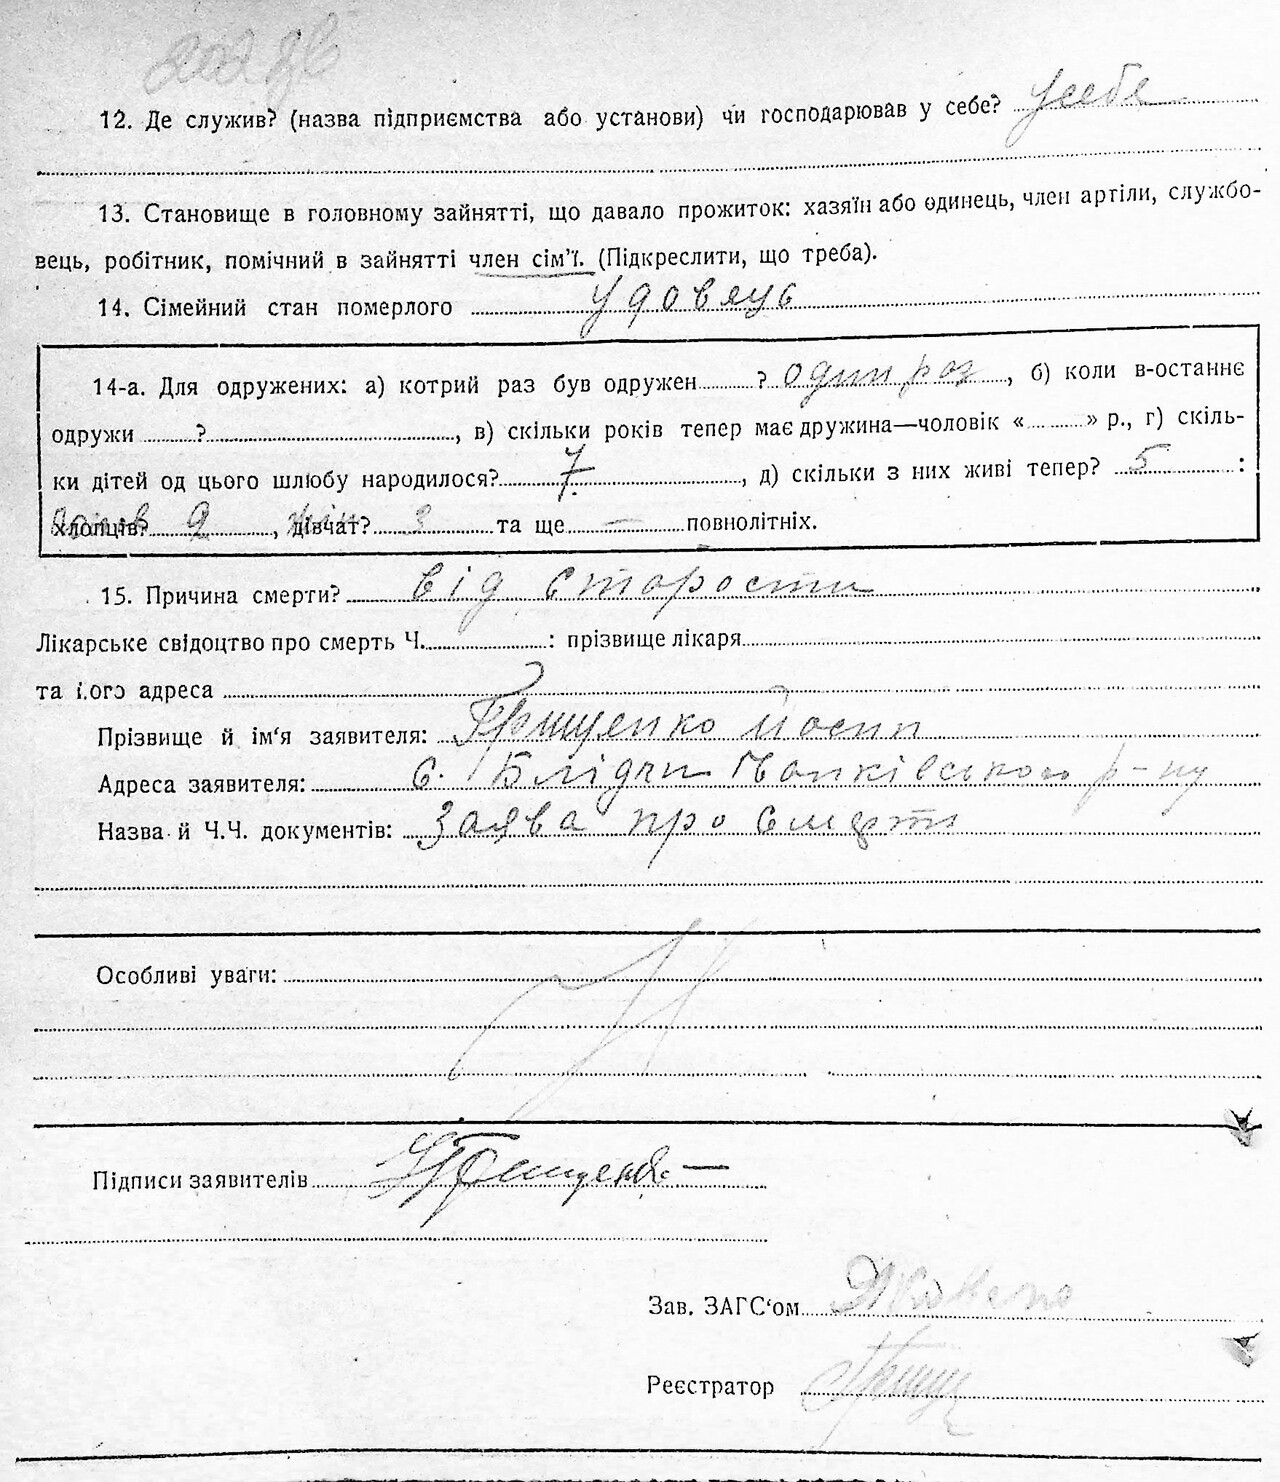 12. Де служив? (назва підприємства або установи) чи господарював у себе? у себе
13. Становище в головному зайнятті, що давало прожиток: хазяїн або одинець, член артіли, службо-
вець, робітник, помічний в зайнятті член сім'ї. (Підкреслити, що треба).
14. Сімейний стан померлого удовець
14-а. Для одружених: а) котрий раз був одружен ? один раз, б) коли в-останнє
одружи ?, в) скільки років тепер має дружина—чоловік « » р., г) скіль-
ки дітей од цього шлюбу народилося? 7, д) скільки з них живі тепер? 5 :
Хлопців? 2, дівчат? 3 та ще — повнолітніх.
15. Причина смерти? від старости
Лікарське свідоцтво про смерть Ч. : прізвище лікаря
та його адреса
Прізвище й ім'я заявителя: Грищенко Йосип
Адреса заявителя: с. Блідчи р-ну
Назва й Ч.Ч. документів: Заява про смерть
Особливі уваги:
Підписи заявителів
Зав. ЗАГС'ом
Реєстратор